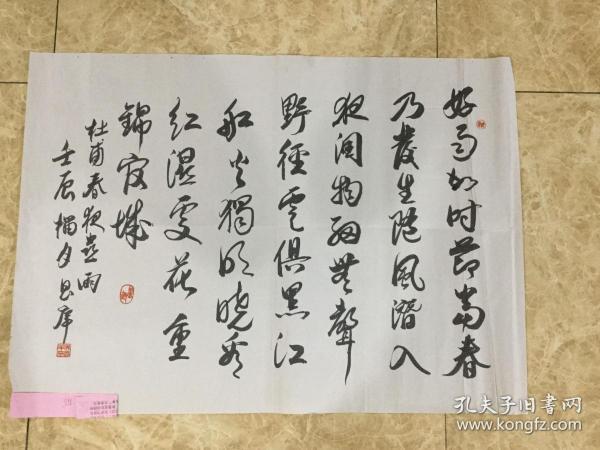 好雨知时节当春
乃发生随风潜入
夜润物细无声
野径云俱黑江
船火独明晓看
红湿处花重
锦官城
杜甫春夜喜雨
壬辰 夕
孔夫子旧书网
www.kongfz.com